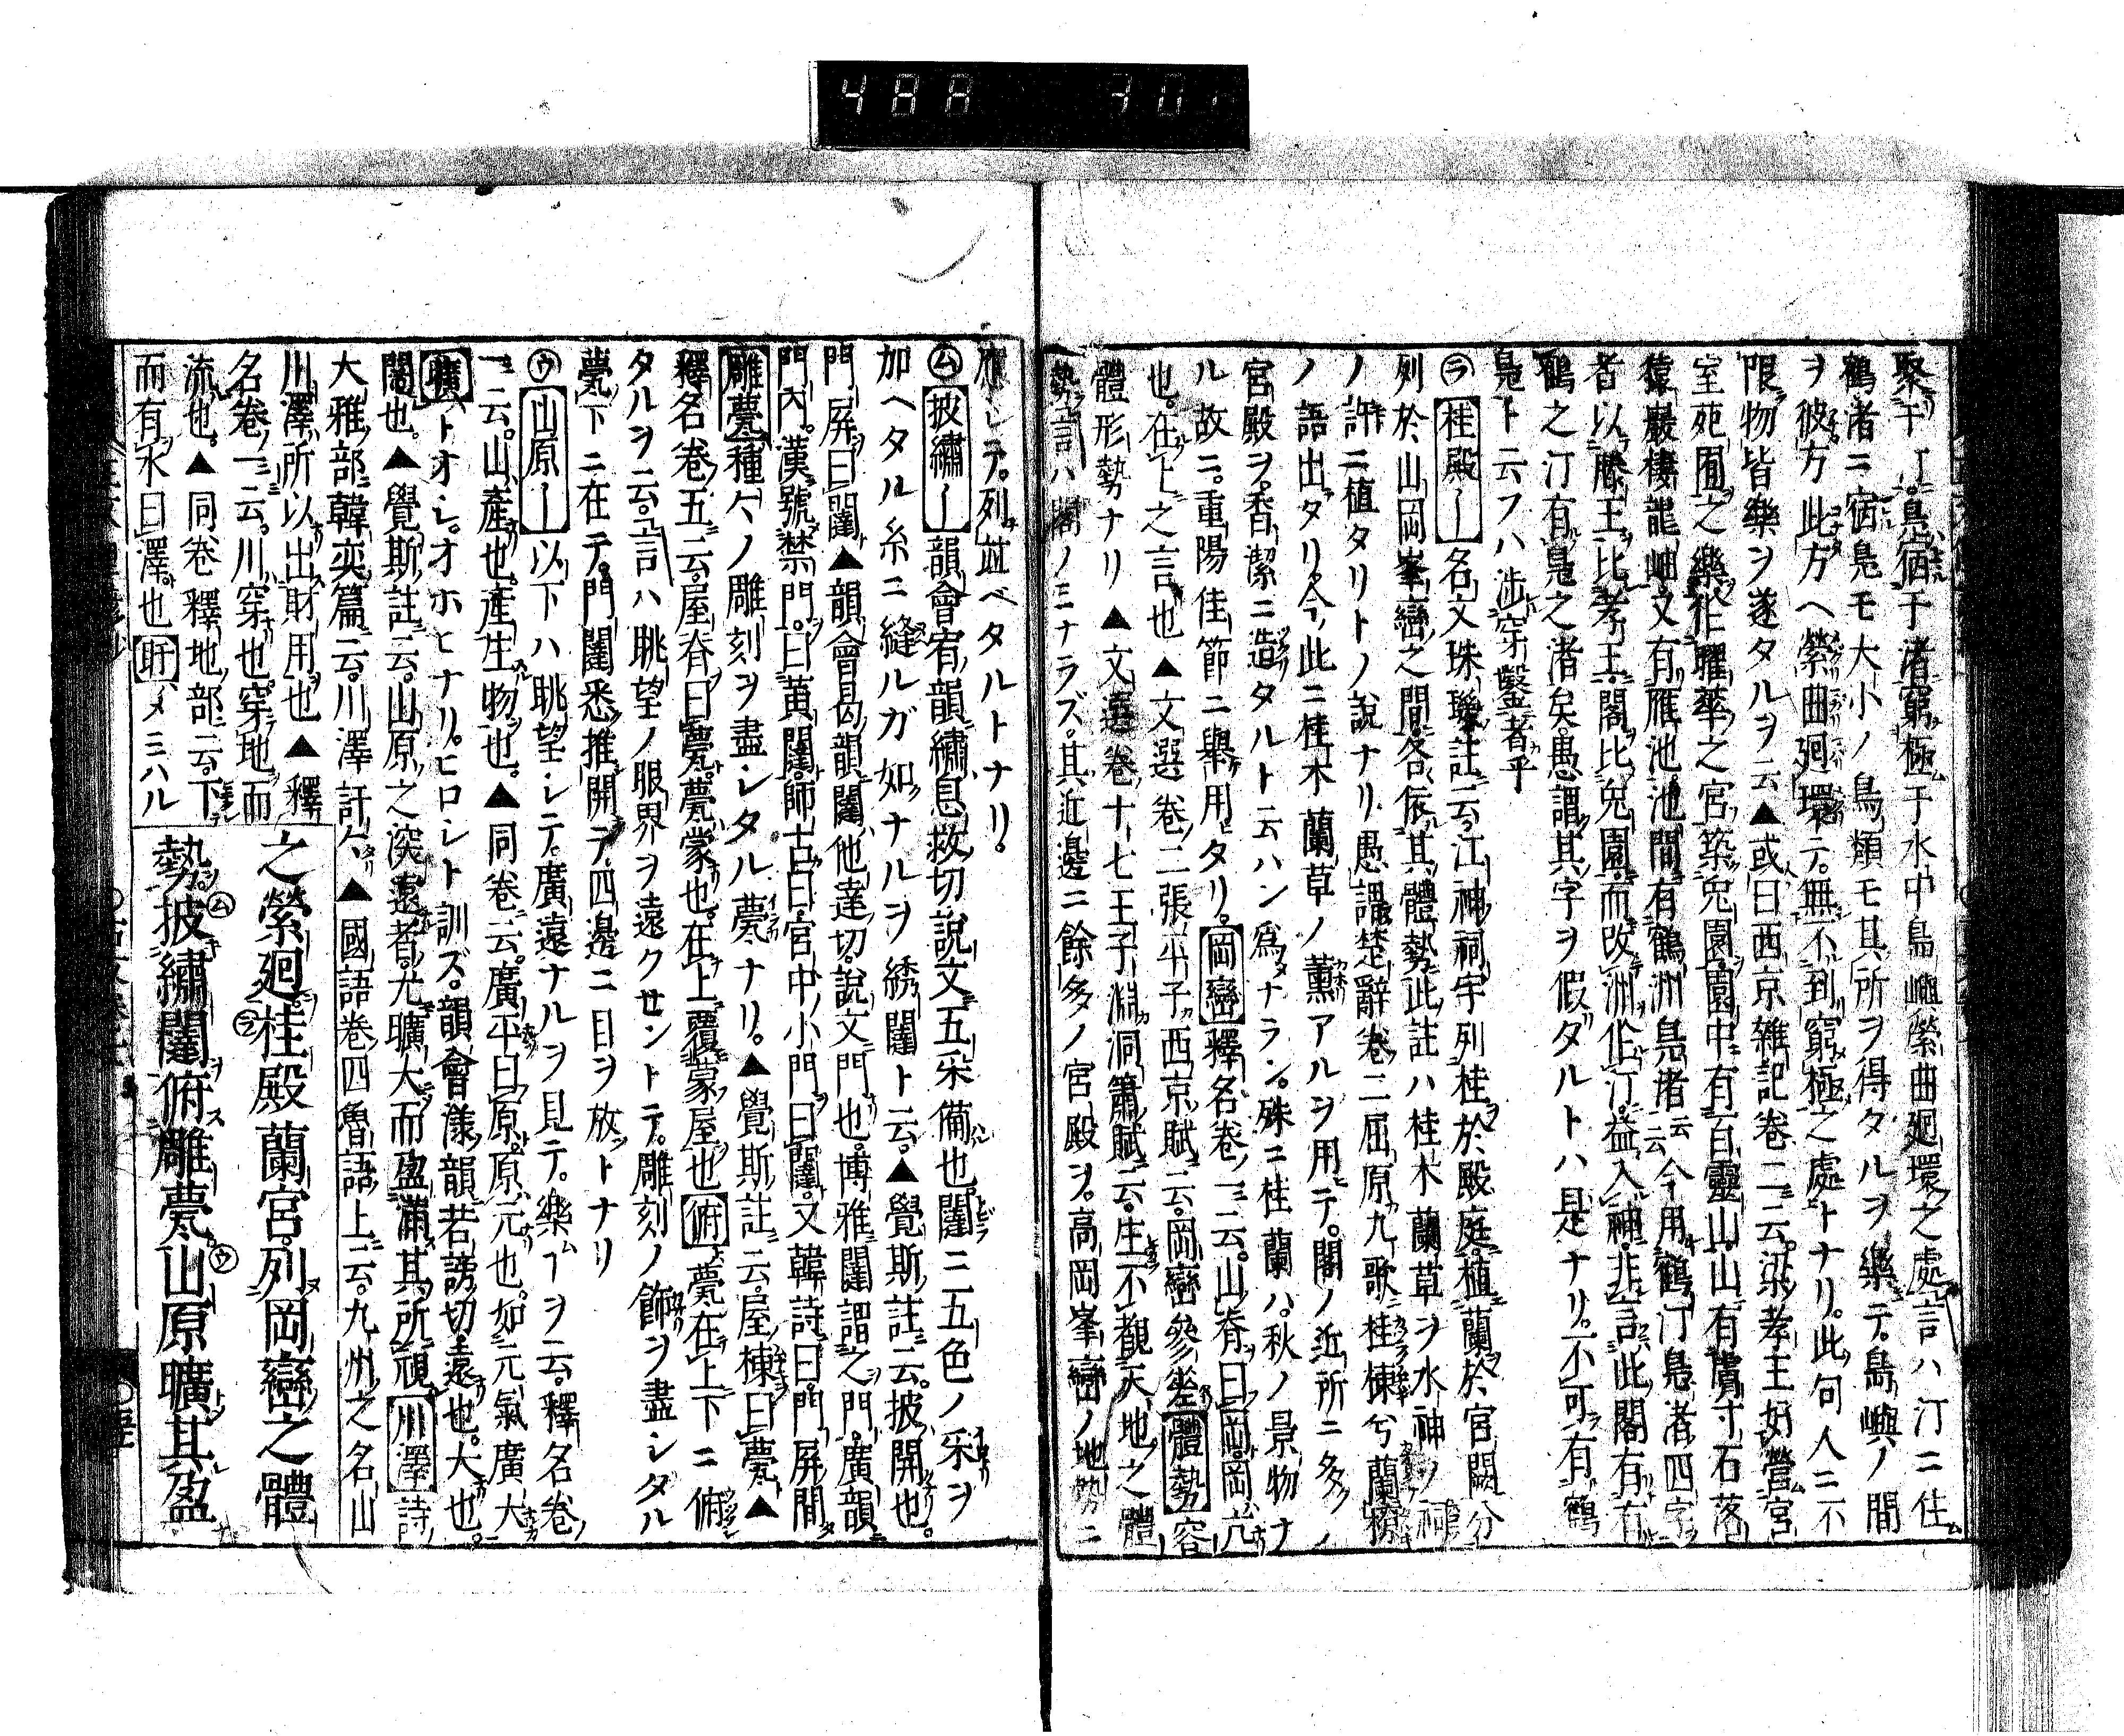 聚于汀。鳧宿于渚窮極于水中島嶼縈曲廻環之處言ハ汀ニ住
鶴渚ニ宿鳧モ大小ノ鳥類モ其所ヲ得タルヲ樂テ。島嶼ノ間
ヲ彼方此方ヘ縈曲廻環テ。無不到窮極之處トナリ。此句人ニ不
限物皆樂ヲ遂タルヲ云▲或曰西京雜記卷二云。梁孝王好營宮
室苑囿之樂作曜華之宮築兎園。園中有百靈山。山有膚寸石落
猿巖棲龍岫又有雁池池間有鶴洲鳧渚云云今用鶴汀鳧渚四字
者以滕王比孝王。閣比兎園而改洲作汀。益入神。非言此閣有有
鶴之汀有鳧之渚矣。愚謂其字ヲ假タルトハ是ナリ。不可有鶴
鳧ト云フハ涉穿鑿者乎
㋶桂殿〡名文珠璣註云江神祠宇列桂於殿庭。植蘭於宮闕分
列於山岡峯巒之間。各依其體勢此註ハ桂木蘭草ヲ水神ノ祠
ノ許ニ植タリトノ說ナリ愚謂楚辭卷二屈原九歌桂棟兮蘭橑
ノ語出タリ今此ニ桂木蘭草ノ薰アルヲ用テ。閣ノ近所ニ多ノ
宮殿ヲ。香潔ニ造タルト云ハン爲ナラン。殊ニ桂蘭ハ。秋ノ景物ナ
ル故ニ。重陽佳節ニ舉用タリ。岡巒釋名卷一云。山脊曰岡。岡亢
也。在上之言也▲文選卷二張平子西京賦云岡巒參差體勢容
體形勢ナリ▲文選卷十七王子淵洞簫賦云。生不觀天地之體
勢言ハ閣ノミナラズ。其近邊ニ餘多ノ宮殿ヲ。高岡峯巒ノ地勢ニ
應レテ。列竝ベタルトナリ。
㋰披繡〡韻會宥韻繡息救切說文五采備也闥ニ五色ノ采ヲ
加ヘタル糸ニ縫ルガ如ナルヲ綉闥ト云。▲覺斯註云。披開也。
門屛曰闥▲韻會曷韻闥他達切。說文門也。博雅闥謂之門。廣韻
門內。漢號禁門。曰黃闥。師古曰宮中小門曰闥。又韓詩曰門屛間
雕甍種〻ノ雕刻ヲ盡レタル甍ナリ。▲覺斯註云。屋棟曰甍▲
釋名卷五云屋脊曰甍。甍蒙也。在上覆蒙屋也俯甍在上下ニ俯
タルヲ云。言ハ眺望ノ眼界ヲ遠クセントテ。雕刻ノ飾ヲ盡レダル
甍下ニ在テ。門闥悉推開テ四邊ニ目ヲ放トナリ
㋒山原〡以下ハ眺望レテ。廣遠ナルヲ見テ。樂ムヿヲ云。釋名卷
一云。山產也產生物也。▲同卷云。廣平曰原。原元也。如元氣廣大
曠ト。オレ。オホヒナリ。ヒロシト訓ズ。韻會漾韻苦謗切。遠也。大也。
闊也。▲覺斯註云。山原之深遠者。尤曠大而盈滿其所視川澤詩
大雅部韓奕篇云。川澤訏〻▲國語卷四魯語上云。九州之名山
川澤所以出財用也▲釋
名卷一云。川穿也穿地而
流也。▲同卷釋地部云。下
而有水曰澤也盱メミハル
之縈廻。桂殿蘭宮。列岡巒之體
勢。披繡闥俯雕甍山原曠其盈